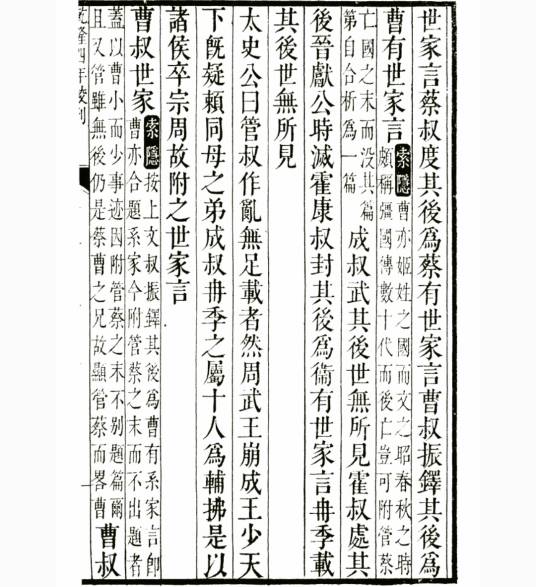 世家言蔡叔度其後爲蔡有世家言曹叔振鐸其後爲
曹有世家言索隱曹亦姬姓之國而文之昭春秋之時
頗稱彊國傳數十代而後亡豈可附管蔡
亡國之末而没其篇
第自合析爲一篇
成叔武其後世無所見霍叔處其
後晉獻公時滅霍康叔封其後爲衞有世家言冉季載
其後世無所見
太史公曰管叔作亂無足載者然周武王崩成王少天
下旣疑賴同母之弟成叔冉季之屬十人爲輔拂是以
諸侯卒宗周故附之世家言
曹叔世家索隱按上文叔振鐸其後爲曹有系家言卽
曹亦合題系家今附管蔡之末而不出題者
蓋以曹小而少事迹因附管蔡之末不别題篇爾
且又管雖無後仍是蔡曹之兄故顯管蔡而畧曹
曹叔
乾隆四年校刊